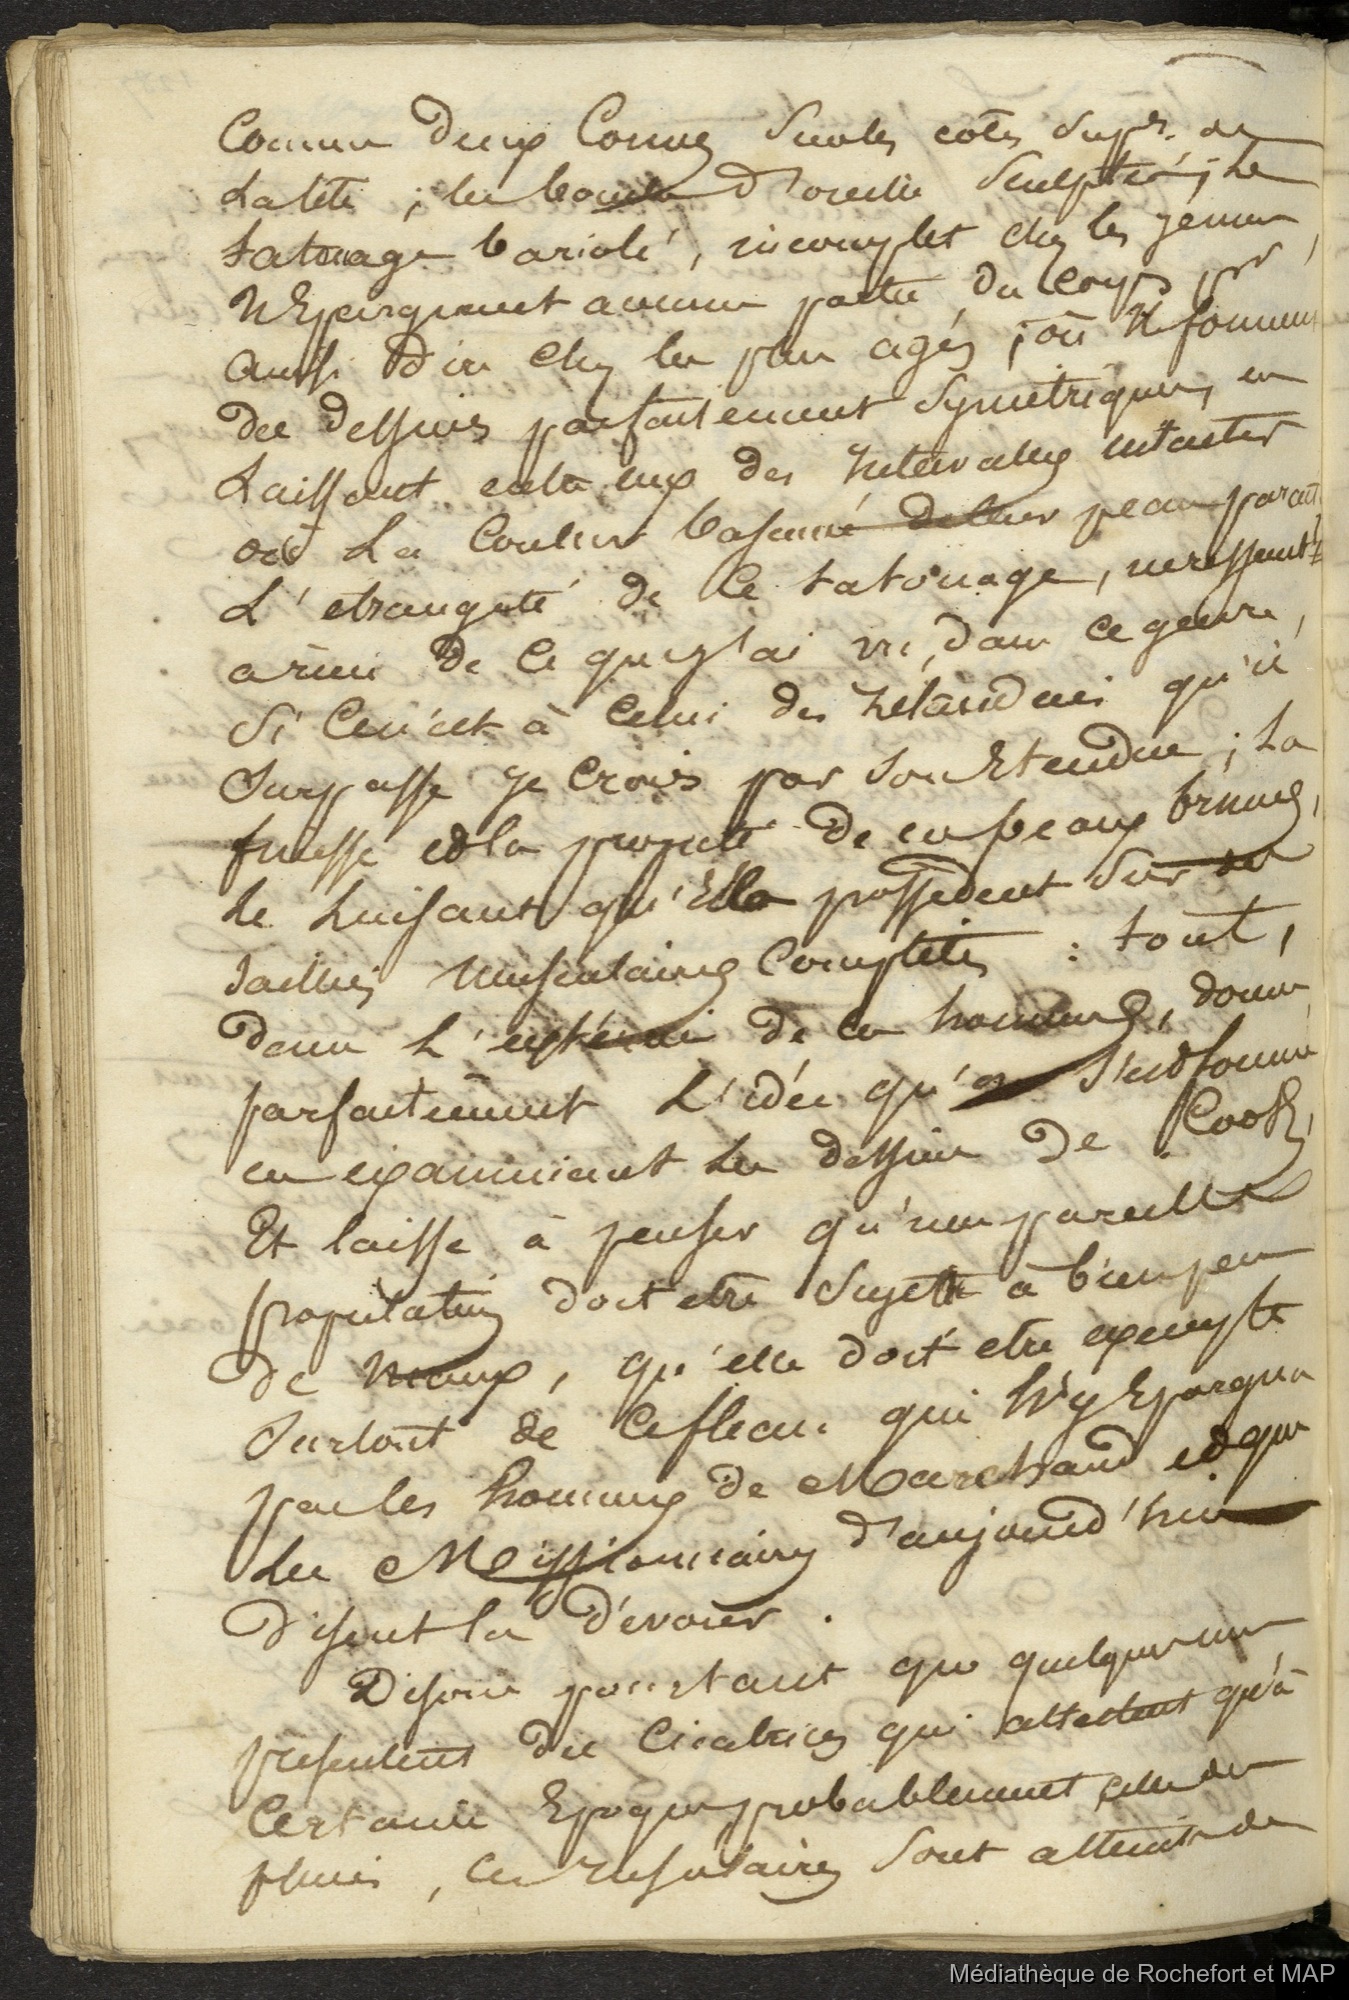 Comme deux Cornes Sur les cotés Supr. de
La tête ; les boucles d'oreille Sculptées ; Le
tatouage bariolé, incomplet chez les jeunes
N'Epargnant aucune partie du corps, pr
ainsi dire chez les plus agés ; où Il forme
des dessins parfaitement Symétriques, en
Laissant entre eux des Intervalles intactes
où La Couleur basanée de leur peau parait
L'etrangeté de Ce tatouage, ne ressemble
a rien de Ce que j'ai vu, dans ce genre,
Si Ce n'est à Celui des Zelandais qu'il
Surpasse je Crois par Son Etendue ; La
finesse et la propreté de ces peaux brunes,
Le Luisant qu'Elles possedent Sur des
Saillies Musculaires Complètes : tout,
dans L'extérieur de ces hommes, donne
parfaitement L'idée qu'on S'est formée
en examinant Les dessins de Cook,
Et laisse à penser qu'une pareille
population doit etre Sujette à bien peu
de maux, qu'elle doit etre exempte
Surtout de Ce fleau qui N'y Epargna
pas les hommes de Marchand et que
Les Missionnaires d'aujourd'hui
disent la dévorer.
Disons pourtant que quelques uns
presentent des Cicatrices qui attestent qu'à
Certaine Epoque probablement celle des
pluies, Ces Insulaires Sont atteints de
Médiathèque de Rochefort et MAP